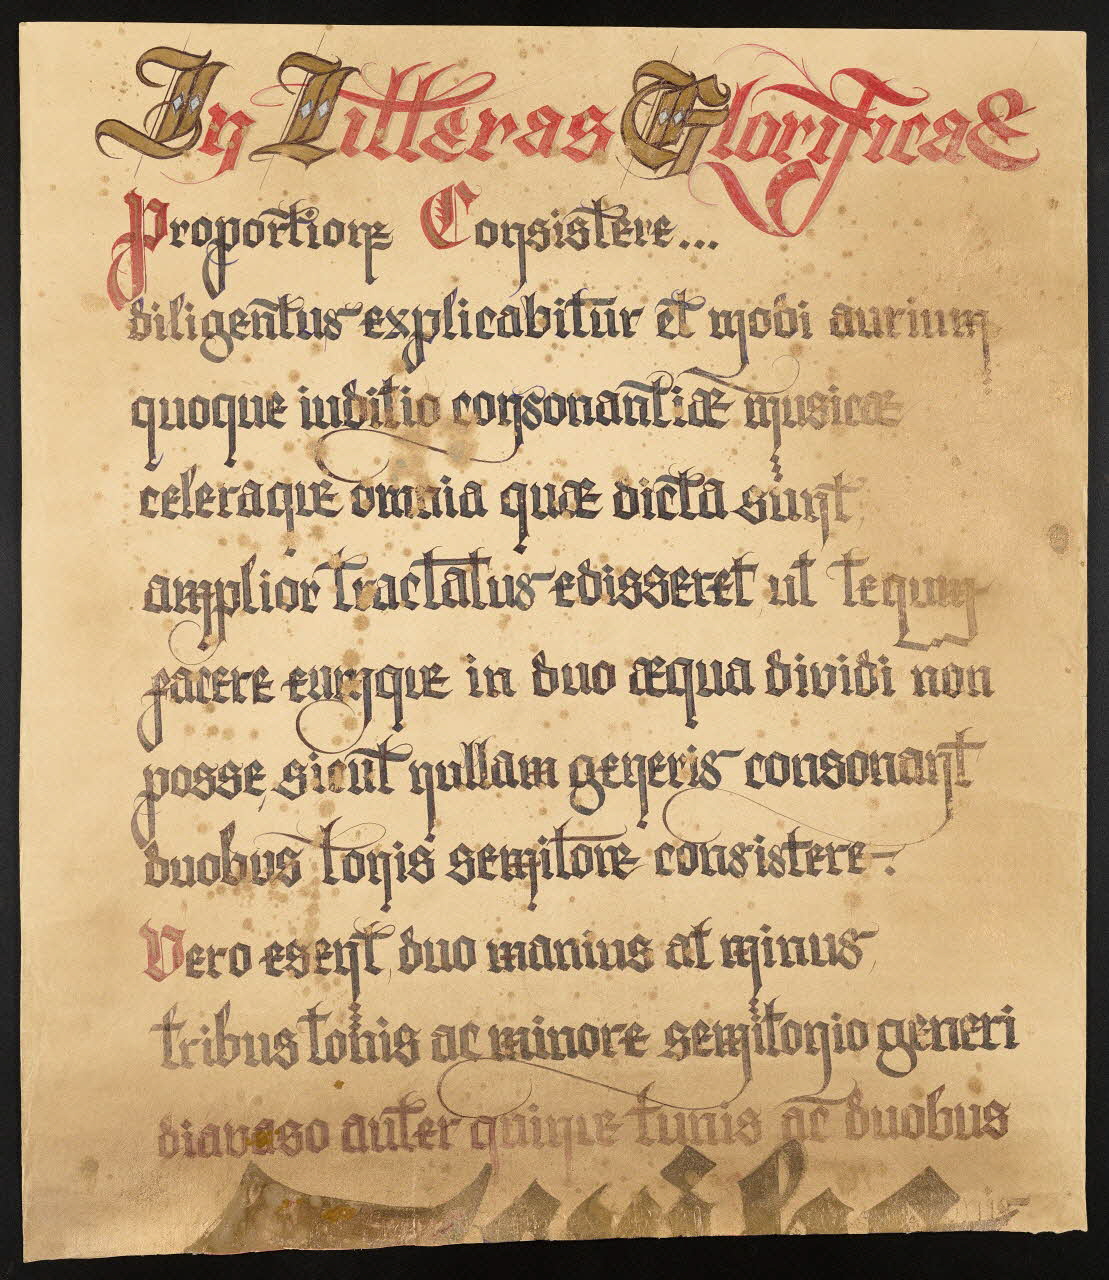 In Litteras Glorificae
Proportione Consistere...
diligentus explicabitur et modi aurium
quoque iuditio consonantiæ musicæ
celeraque omnia quæ dicta sunt,
amplior tractatus edisseret ut tequm
facere eumque in duo æqua dividi non
posse, sicut nullam generis consonant
duobus tonis semitone consistere.
Vero esent, duo manius at minus,
tribus tonis ac minore semitonio generi
diavaso auter quinque tunis ac duobus